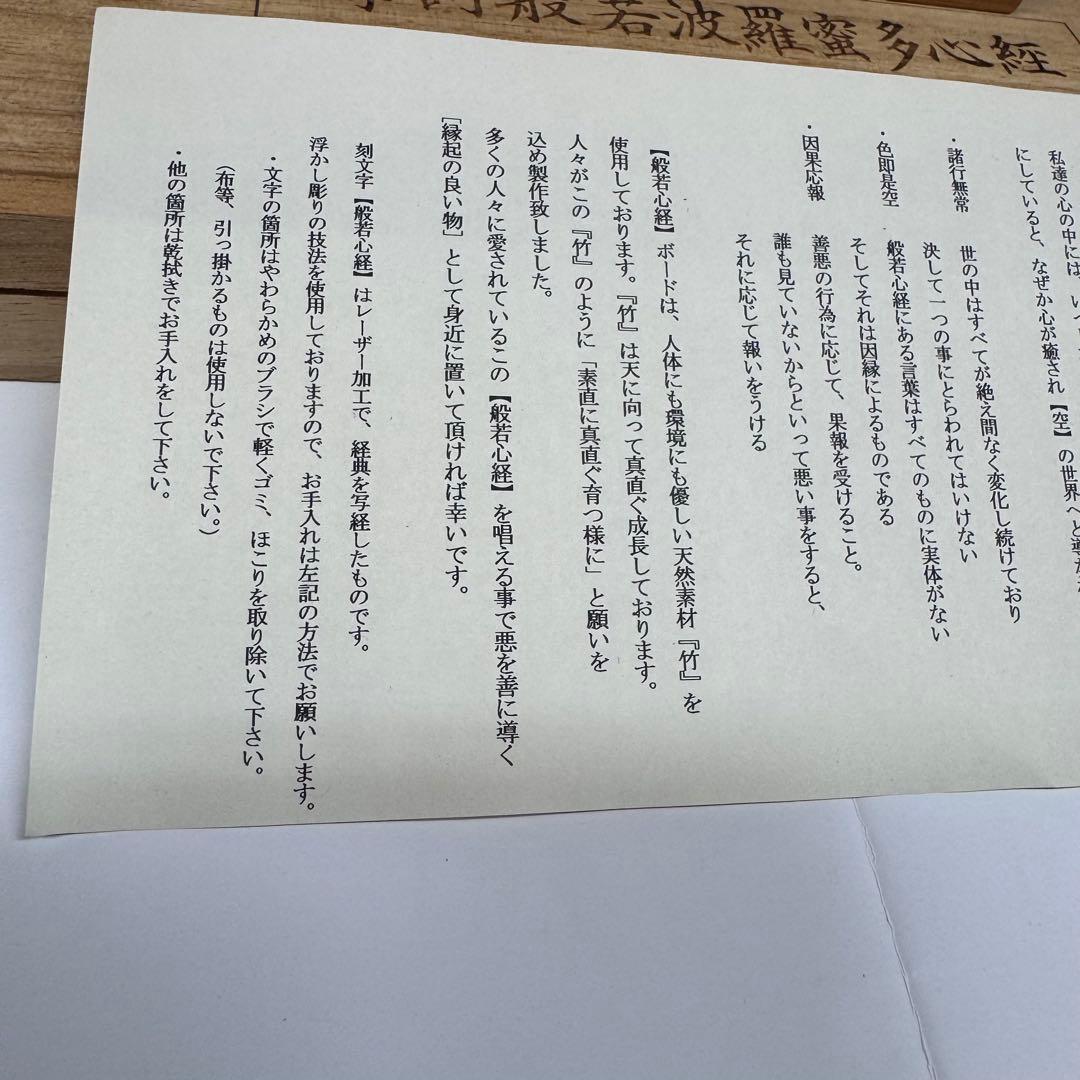 般若波羅蜜多心經
私達の心の中には、いつ
にしていると、なぜか心が癒され【空】の世界へと導か
・諸行無常
世の中はすべてが絶え間なく変化し続けており
決して一つの事にとらわれてはいけない
・色即是空
般若心経にある言葉はすべてのものに実体がない
そしてそれは因縁によるものである
・因果応報
善悪の行為に応じて、果報を受けること。
誰も見ていないからといって悪い事をすると、
それに応じて報いをうける
【般若心経】ボードは、人体にも環境にも優しい天然素材『竹』を
使用しております。『竹』は天に向って真直ぐ成長しております。
人々がこの『竹』のように「素直に真直ぐ育つ様に」と願いを
込め製作致しました。
多くの人々に愛されているこの【般若心経】を唱える事で悪を善に導く
［縁起の良い物］として身近に置いて頂ければ幸いです。
刻文字【般若心経】はレーザー加工で、経典を写経したものです。
浮かし彫りの技法を使用しておりますので、お手入れは左記の方法でお願いします。
・文字の箇所はやわらかめのブラシで軽くゴミ、ほこりを取り除いて下さい。
（布等、引っ掛かるものは使用しないで下さい。）
・他の箇所は乾拭きでお手入れをして下さい。